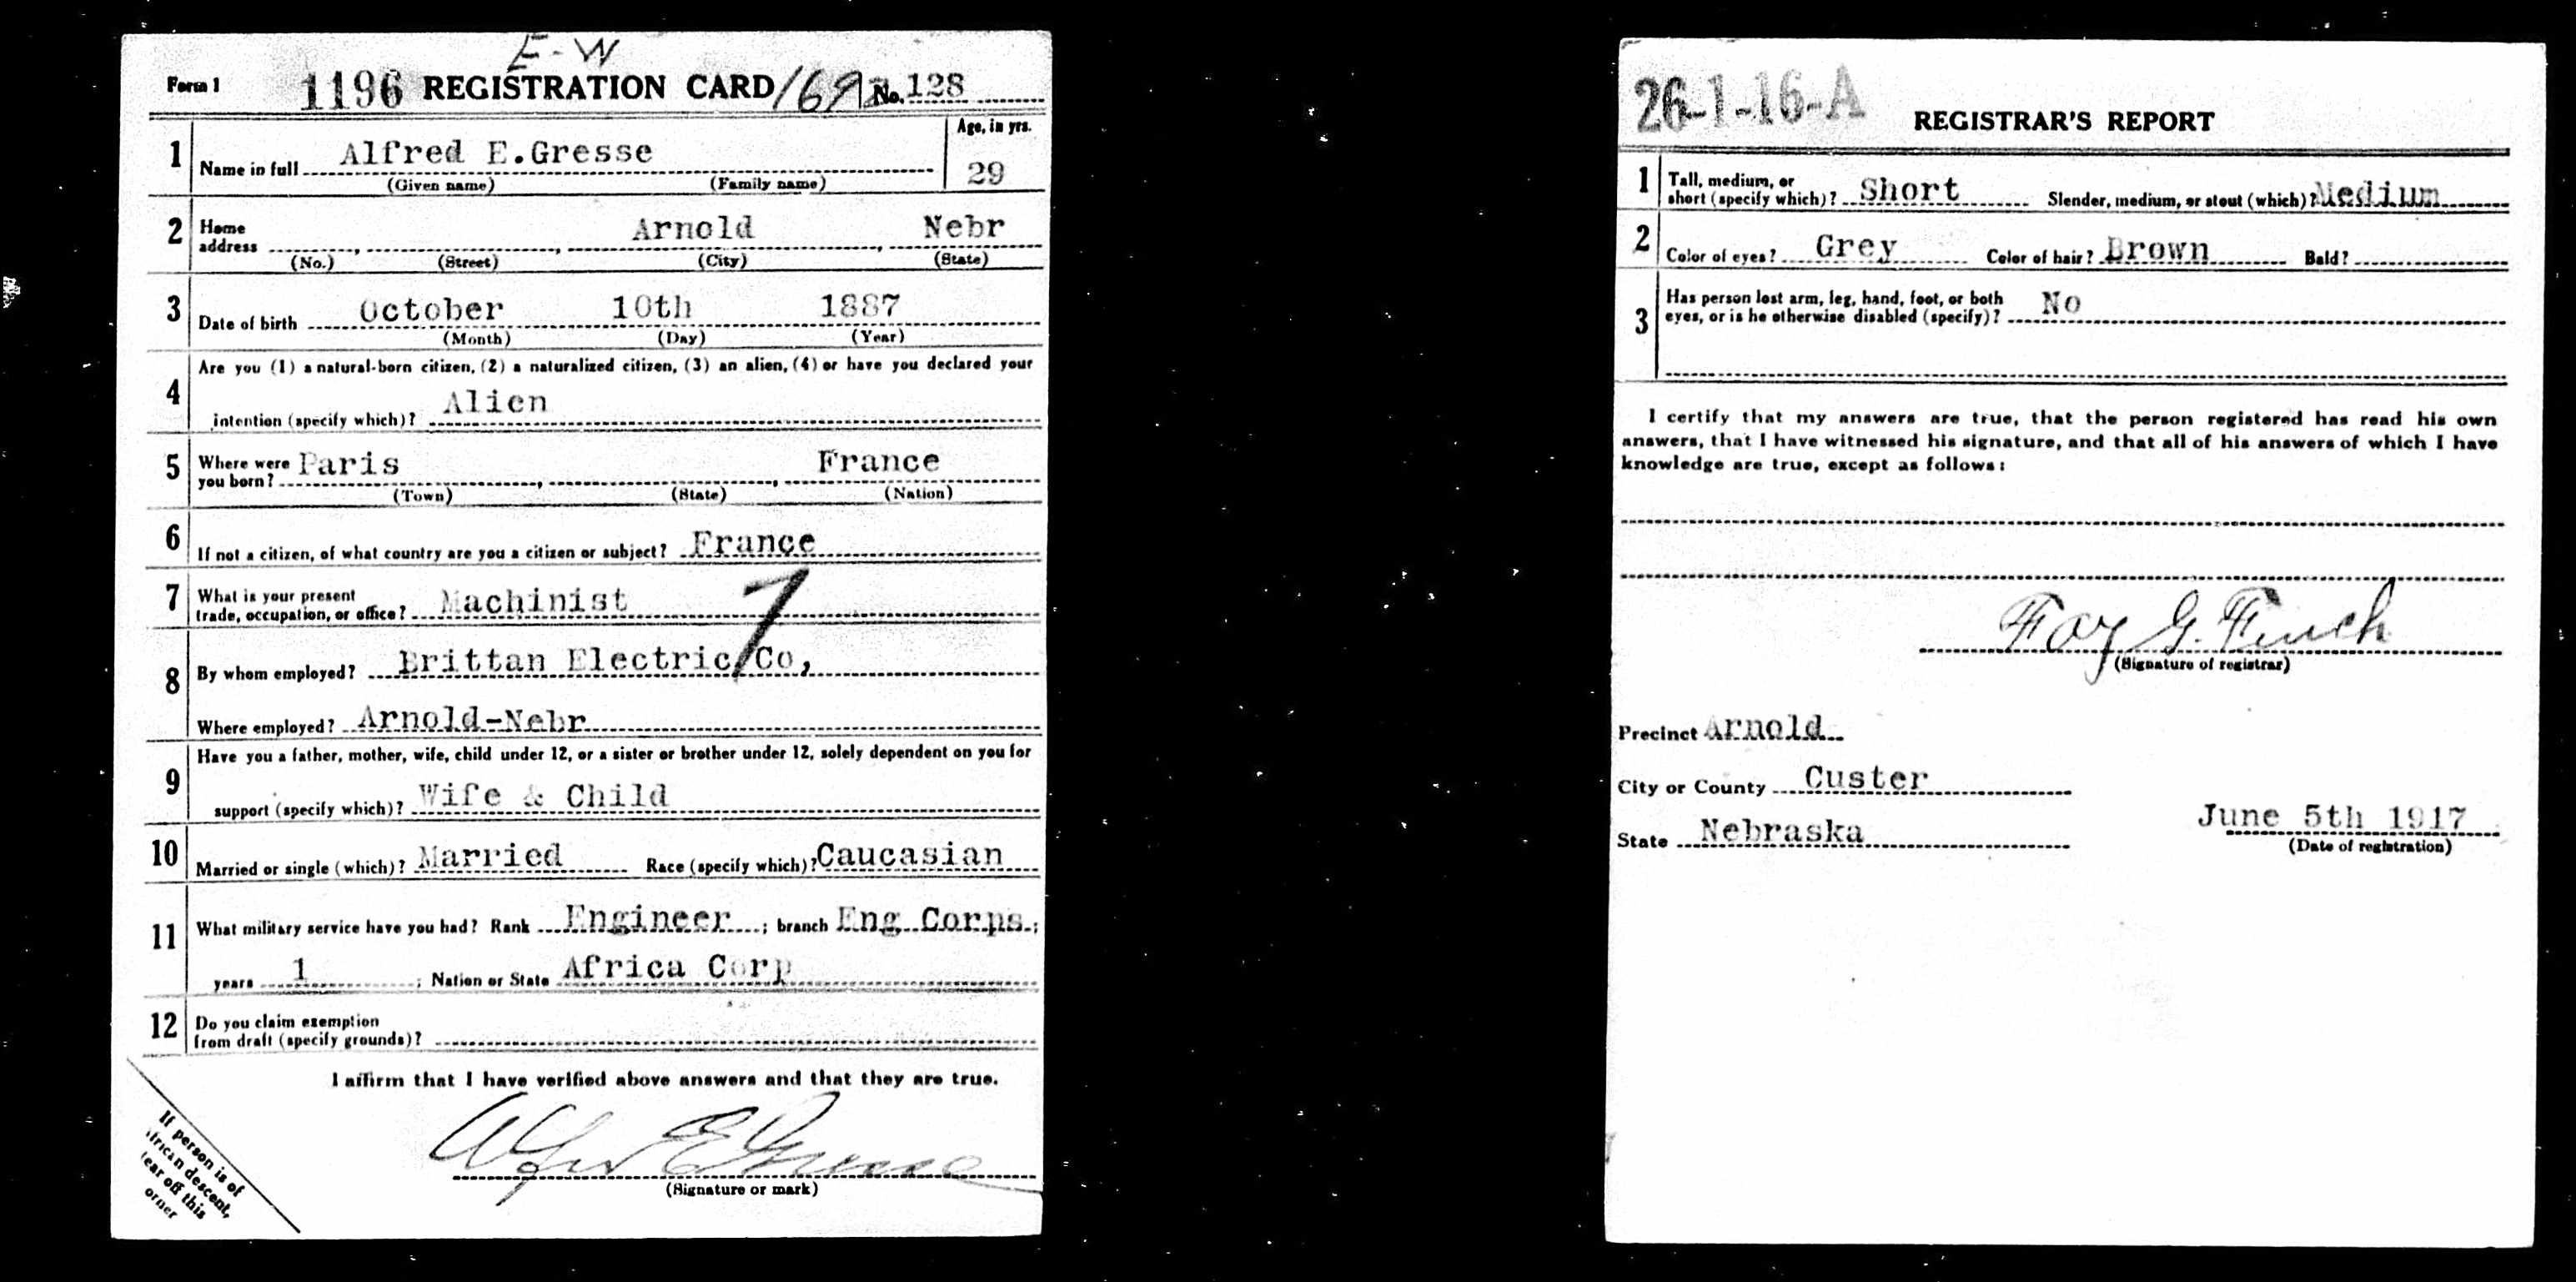 E-W
Form 1 1196 REGISTRATION CARD 169 No. 128
1 Name in full Alfred E.Gresse Age, in yrs. 29
(Given name) (Family name)
2 Home address Arnold Nebr
(No.) (Street) (City) (State)
3 Date of birth October 10th 1887
(Month) (Day) (Year)
4 Are you (1) a natural-born citizen, (2) a naturalized citizen, (3) an alien, (4) or have you declared your
intention (specify which)? Alien
5 Where were you born? Paris France
(Town) (State) (Nation)
6 If not a citizen, of what country are you a citizen or subject? France
7 What is your present trade, occupation, or office? Machinist
8 By whom employed? Brittan Electric Co,
Where employed? Arnold-Nebr
9 Have you a father, mother, wife, child under 12, or a sister or brother under 12, solely dependent on you for
support (specify which)? Wife & Child
10 Married or single (which)? Married Race (specify which)? Caucasian
11 What military service have you had? Rank Engineer ; branch Eng Corps ;
years 1 ; Nation or State Africa Corp
12 Do you claim exemption
from draft (specify grounds)?
I affirm that I have verified above answers and that they are true.
Alfred E Gresse
(Signature or mark)
If person is of
frican descent,
tear off this
orner
26-1-16-A
REGISTRAR'S REPORT
1 Tall, medium, or
short (specify which)? Short Slender, medium, or stout (which)? Medium
2 Color of eyes? Grey Color of hair? Brown Bald?
3 Has person lost arm, leg, hand, foot, or both
eyes, or is he otherwise disabled (specify)? No
I certify that my answers are true, that the person registered has read his own
answers, that I have witnessed his signature, and that all of his answers of which I have
knowledge are true, except as follows:
Foy G. Finch
(Signature of registrar)
Precinct Arnold
City or County Custer
State Nebraska
June 5th 1917
(Date of registration)